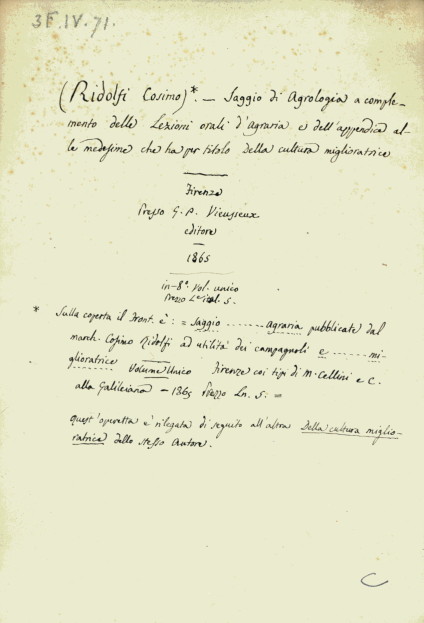 3F.IV.71.
(Ridolfi Cosimo)*. — Saggio di Agrologia a comple-
mento delle Lezioni orali d'Agraria e dell'appendice al-
le medesime che ha per titolo Della cultura miglioratrice
Firenze
Presso G. P. Vieusseux
editore
1865
in-8º. Vol. unico
Prezzo L. 5.
* Sulla coperta il Front. è : = Saggio ........ agraria pubblicate dal
march. Cosimo Ridolfi ad utilità dei campagnoli e ....... mi-
glioratrice Volume Unico Firenze coi tipi di M. Cellini e C.
alla Galileiana — 1865 Prezzo Ln. 5. =
quest'operetta è rilegata di seguito all'altra Della cultura miglio-
ratrice dello stesso Autore.
C